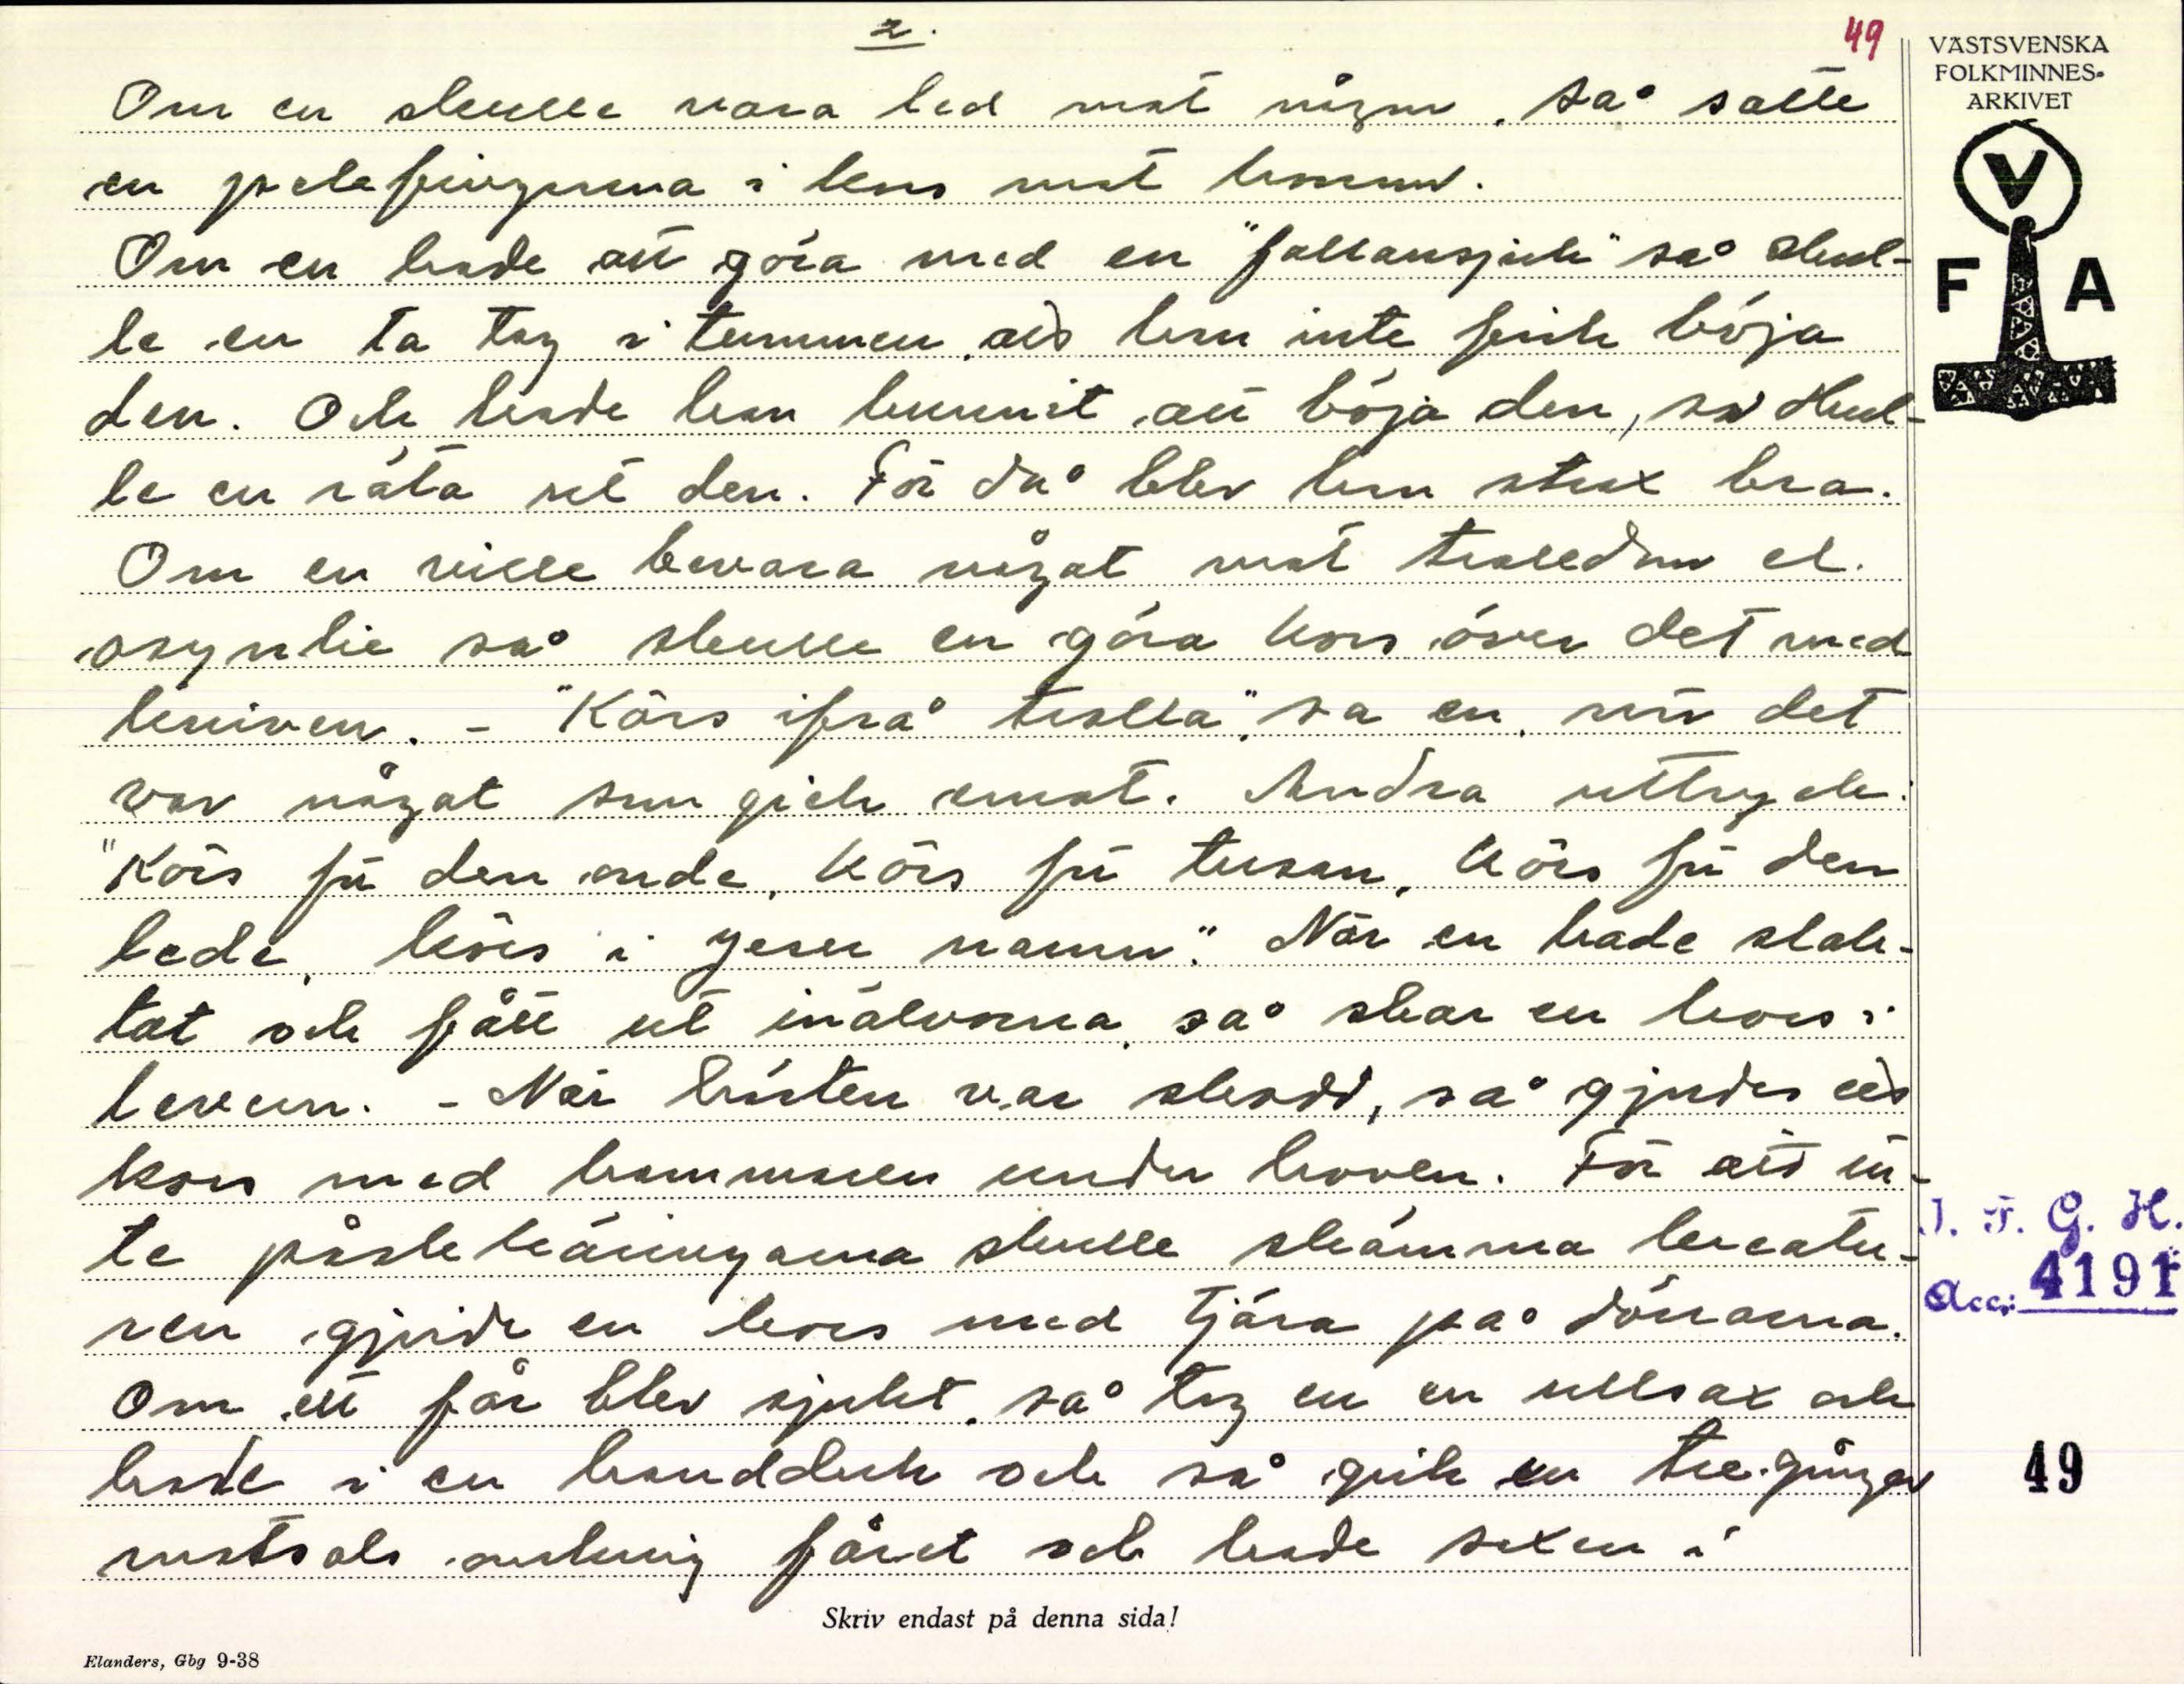 2.
49
VÄSTSVENSKA
FOLKMINNES-
ARKIVET
V
F A
Om en skulle vara led mot någon, så satte
en pekefingrarna i kors mot honom.
Om en hade att göra med en "fallansjuk" så skul-
le en ta tag i tummen, att han inte fick böja
den. Och hade han hunnit att böja den, så skul-
le en räta ut den. För då blev han strax bra.
Om en ville bevara något mot trolldom el.
osynlie så skulle en göra kors över det med
kniven. - "Körs ifrå trolla", sa en, när det
var något som gick emot. Andra uttryck:
"Körs för den onde, körs för tusan, körs för den
lede, körs i Jesu namn". När en hade slak-
tat och fått ut inälvorna, så skar en kors i
leveren. - När hästen var skodd, så gjordes ett
kors med hammaren under hoven. För att in-
te påskkäringarna skulle skämma kreatu-
ren gjorde en kors med tjära på dörrarna.
Om ett får blev sjukt, så tog en en ullsax och
hade i en handduk och så gick en tre gånger
motsols omkring fåret och hade saxen i
J. F. G. H.
Acc: 4191
49
Skriv endast på denna sida!
Elanders, Gbg 9-38